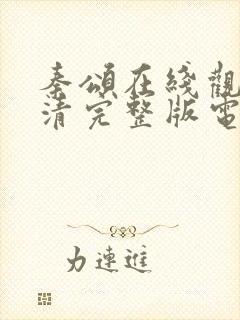 秦頌在綫觀
清完整版電
力連進